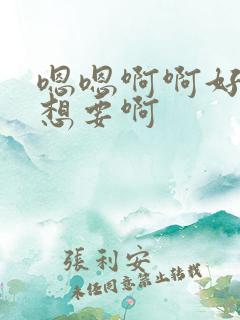 嗯嗯啊啊好
想要啊
張利安
未经同意禁止转载